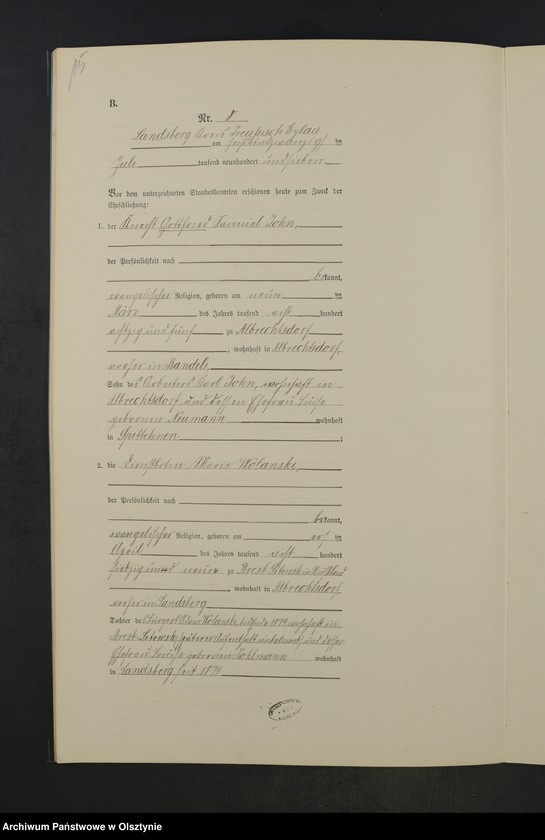 B.
Nr. 8
Landsberg Kreis Preußisch Eylau
am sechsundzwanzigsten
Juli tausend neunhundert und sieben
Vor dem unterzeichneten Standesbeamten erschienen heute zum Zweck der
Eheschließung:
1. der Knecht Gottfried Samuel John,
der Persönlichkeit nach
bekannt,
evangelischer Religion, geboren am neunten
März des Jahres tausend acht hundert
achtzig und fünf zu Albrechtsdorf
, wohnhaft in Albrechtsdorf,
vorher in Bandels,
Sohn des Arbeiters Karl John, wohnhaft in
Albrechtsdorf und dessen Ehefrau Luise
geborenen Neumann wohnhaft
in Spittehnen ;
2. die Dienstbotin Marie Wolanski,
der Persönlichkeit nach
bekannt,
evangelischer Religion, geboren am
April des Jahres tausend acht hundert
siebzig und neun zu Brest Litowsk in Rußland
, wohnhaft in Albrechtsdorf
vorher in Landsberg
Tochter des Adam Wolanski, bis Ende 1879 wohnhaft in
Brest Litowsk, späterer Aufenthalt unbekannt, und dessen
Ehefrau Louise geborenen wohnhaft
in Landsberg seit 1879
Archiwum Państwowe w Olsztynie